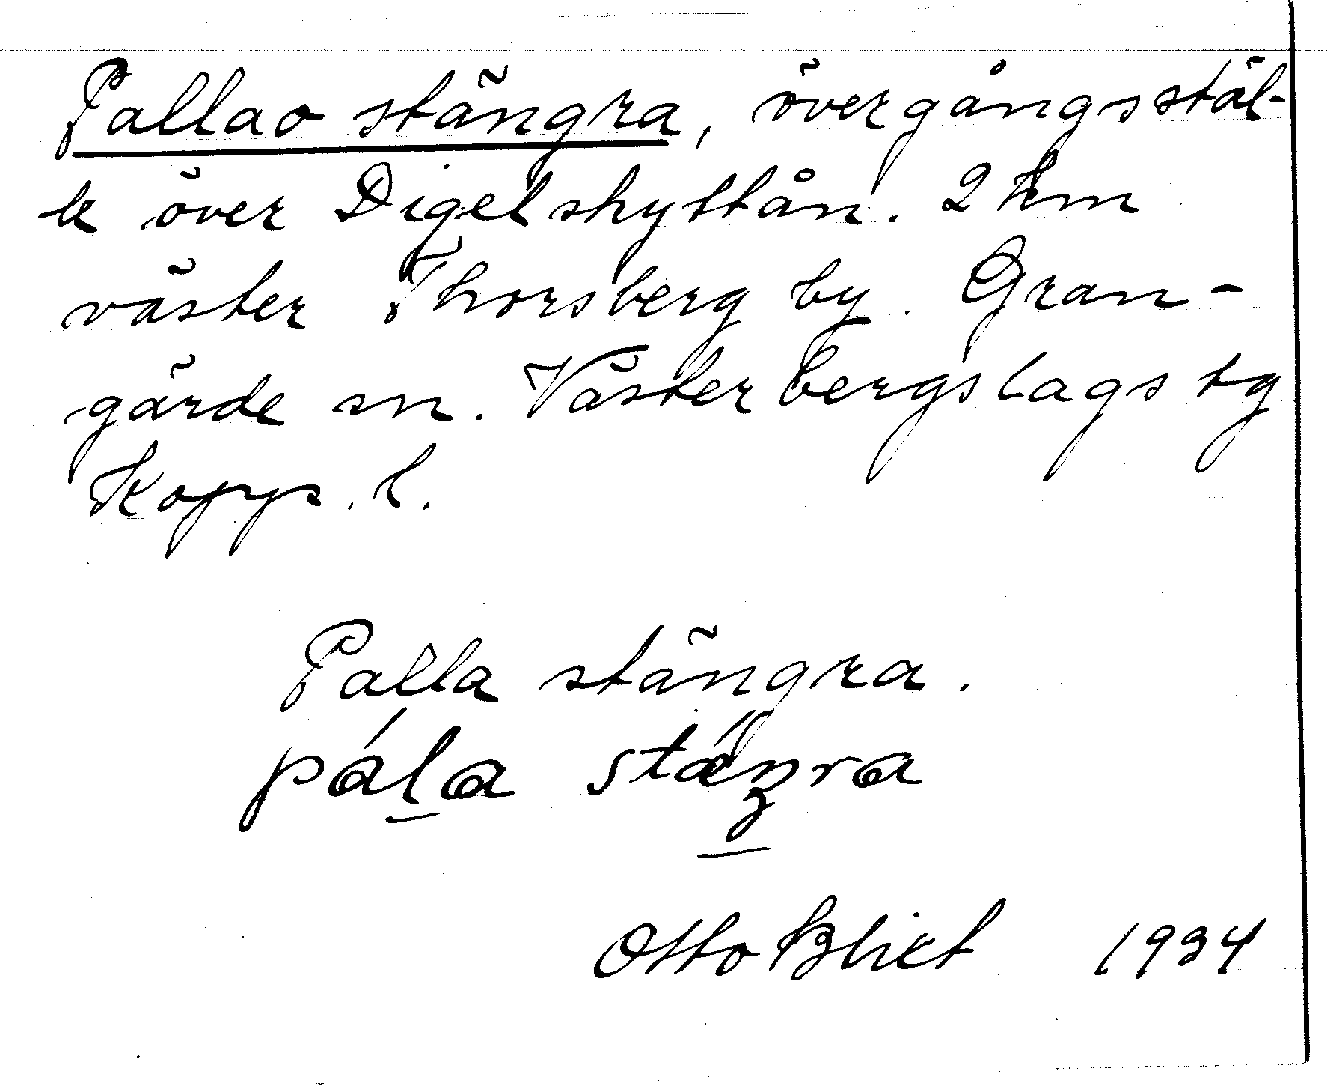 Pallao stängra, övergångsstäl-
le över Digelshyttån. 2 km
väster Thorsberg by. Gran-
gärde sn. Västerbergslags tg
Kopps. l.
Palla stängra.
pála stáŋra
Otto Blixt 1934